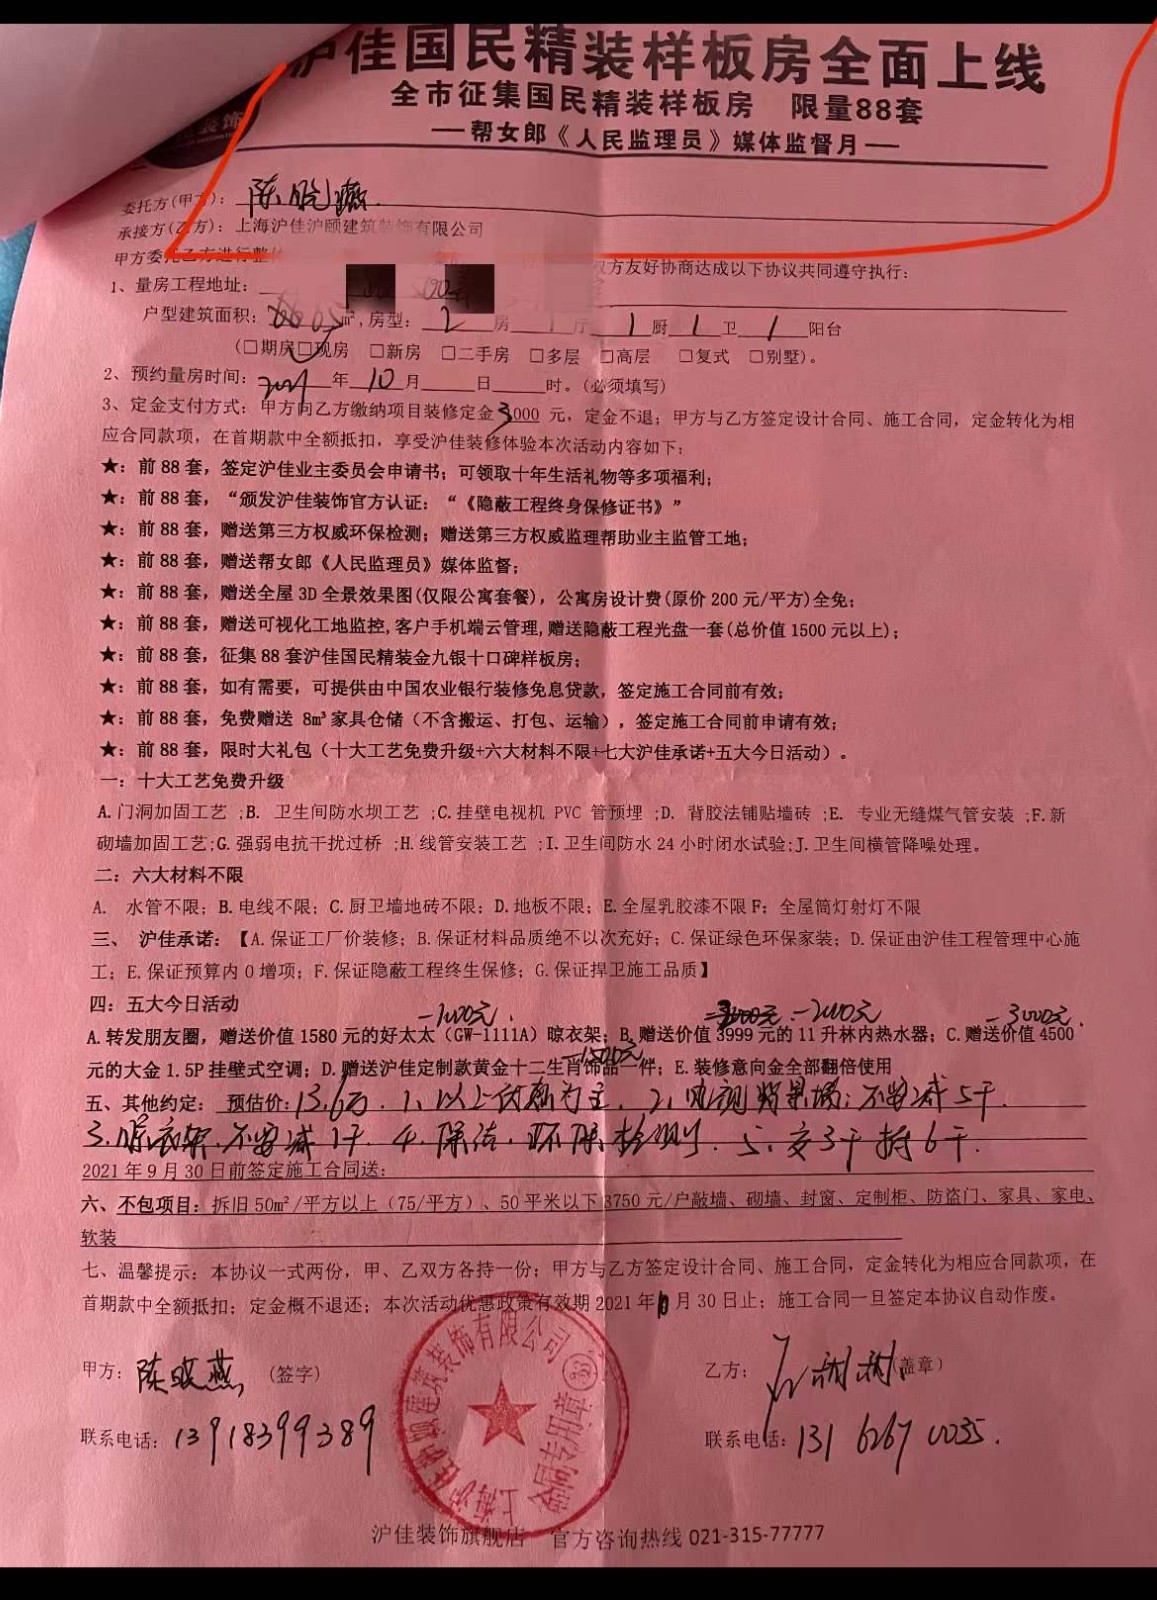 沪佳国民精装样板房全面上线
全市征集国民精装样板房 限量88套
——帮女郎《人民监理员》媒体监督月——
装饰
委托方(甲方)：陈晓燕
承接方(乙方)：上海沪佳沪颐建筑装饰有限公司
甲方委托乙方进行整 双方友好协商达成以下协议共同遵守执行：
1、量房工程地址：
户型建筑面积： m²,房型：2房1厅1厨1卫1阳台
(□期房□现房 □新房 □二手房 □多层 □高层 □复式 □别墅)。
2、预约量房时间：2021年10月 日 时。(必须填写)
3、定金支付方式：甲方向乙方缴纳项目装修定金3000元，定金不退；甲方与乙方签定设计合同、施工合同，定金转化为相
应合同款项，在首期款中全额抵扣，享受沪佳装修体验本次活动内容如下：
★：前88套，签定沪佳业主委员会申请书；可领取十年生活礼物等多项福利；
★：前88套，“颁发沪佳装饰官方认证：“《隐蔽工程终身保修证书》”
★：前88套，赠送第三方权威环保检测；赠送第三方权威监理帮助业主监管工地；
★：前88套，赠送帮女郎《人民监理员》媒体监督；
★：前88套，赠送全屋3D全景效果图(仅限公寓套餐)，公寓房设计费(原价200元/平方)全免；
★：前88套，赠送可视化工地监控,客户手机端云管理,赠送隐蔽工程光盘一套(总价值1500元以上)；
★：前88套，征集88套沪佳国民精装金九银十口碑样板房；
★：前88套，如有需要，可提供由中国农业银行装修免息贷款，签定施工合同前有效；
★：前88套，免费赠送 8m³家具仓储（不含搬运、打包、运输），签定施工合同前申请有效；
★：前88套，限时大礼包（十大工艺免费升级+六大材料不限+七大沪佳承诺+五大今日活动）。
一：十大工艺免费升级
A.门洞加固工艺 ;B. 卫生间防水坝工艺 ;C.挂壁电视机 PVC 管预埋 ;D. 背胶法铺贴墙砖 ;E. 专业无缝煤气管安装 ;F.新
砌墙加固工艺;G.强弱电抗干扰过桥 ;H.线管安装工艺 ;I.卫生间防水24小时闭水试验;J.卫生间横管降噪处理。
二：六大材料不限
A. 水管不限；B.电线不限；C.厨卫墙地砖不限；D.地板不限；E.全屋乳胶漆不限F：全屋筒灯射灯不限
三、 沪佳承诺：【A.保证工厂价装修；B.保证材料品质绝不以次充好；C.保证绿色环保家装；D.保证由沪佳工程管理中心施
工；E.保证预算内0增项；F.保证隐蔽工程终生保修；G.保证捍卫施工品质】
四：五大今日活动
-1000元. -2000元 -3000元.
A.转发朋友圈，赠送价值1580元的好太太（GW-1111A）晾衣架；B.赠送价值3999元的11升林内热水器；C.赠送价值4500
元的大金1.5P挂壁式空调；D.赠送沪佳定制款黄金十二生肖饰品一件；E.装修意向金全部翻倍使用
-1500元
五、其他约定：预估价：13.6万. 1、以上优惠为主. 2、电视背景墙：不要减5千.
3.晾衣架.不要减1千.4.保洁.环保检测. 5、交3千抵6千.
2021年9月30日前签定施工合同送：
六、不包项目：拆旧50m²/平方以上（75/平方）、50平米以下3750元/户敲墙、砌墙、封窗、定制柜、防盗门、家具、家电、
软装
七、温馨提示：本协议一式两份，甲、乙双方各持一份；甲方与乙方签定设计合同、施工合同，定金转化为相应合同款项，在
首期款中全额抵扣；定金概不退还；本次活动优惠政策有效期2021年 月30日止；施工合同一旦签定本协议自动作废。
甲方：陈晓燕 (签字) 乙方： (盖章)
联系电话：13918399389 联系电话：131 6267 0035.
上海沪佳沪颐建筑装饰有限公司
合同专用章
沪佳装饰旗舰店 官方咨询热线 021-315-77777